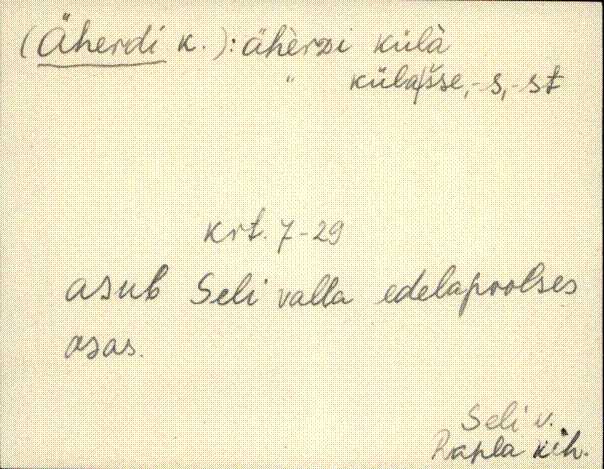 (Äherdi k.): äherDi külà
" küla|šse, -s, -st
krt. 7-29
asub Seli valla edelapoolses
osas.
Seli v.
Rapla kih.